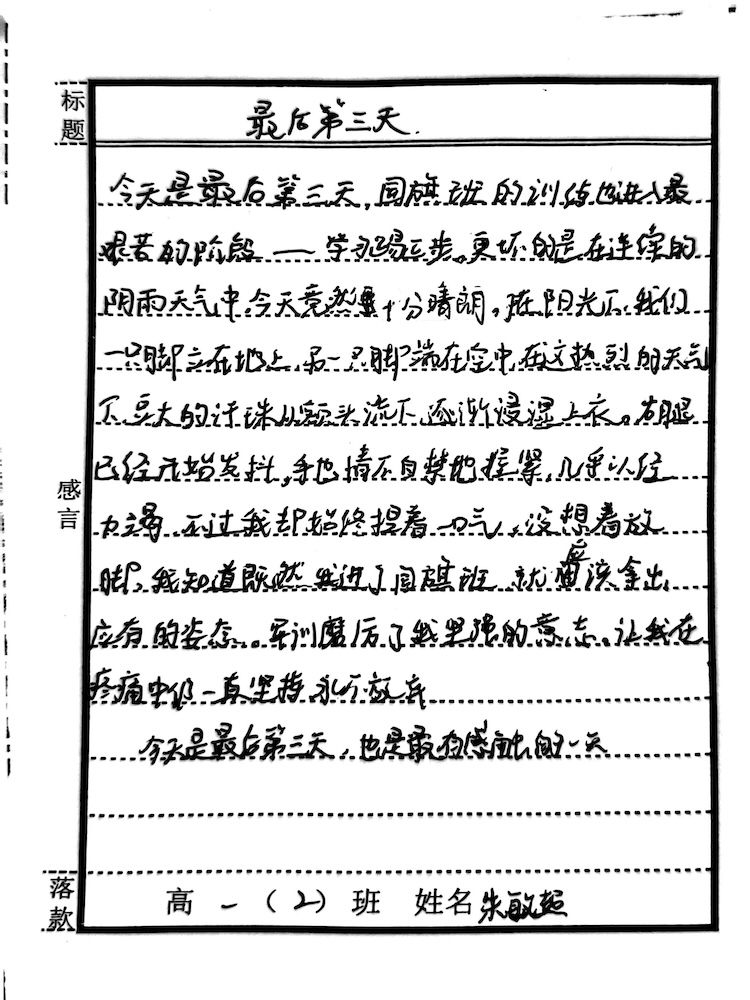 标题
最后第三天.
今天是最后第三天,国旗班的训练也进入最
艰苦的阶段——学习踢正步。更坏的是在连续的
阴雨天气中,今天竟然是十分晴朗。在阳光下,我们
一只脚立在地上,另一只脚端在空中,在这热烈的天气
下,豆大的汗珠从额头流下,逐渐浸湿上衣。右腿
已经开始发抖,手也情不自禁地握紧,几乎以经
力竭 不过我却始终提着一口气,没想着放
脚,我知道既然我进了国旗班 就应该拿出
应有的姿态。军训磨厉了我坚强的意志,让我在
疼痛中仍一直坚持 永不放弃
今天是最后第三天,也是最有感触的一天
感言
落款
高一(2)班 姓名朱敏超